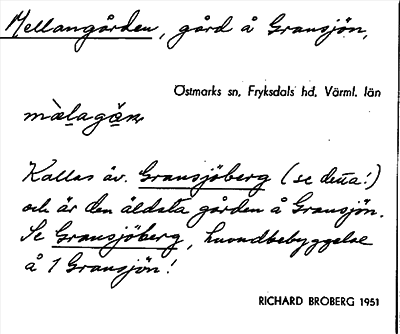 Mellangården, gård å Gransjön,
Östmarks sn, Fryksdals hd, Värml. län
Kallas äv. Gransjöberg (se detta!)
och är den äldsta gården å Gransjön.
Se Gransjöberg, huvudbebyggelse
å 1 Gransjön!
RICHARD BROBERG 1951